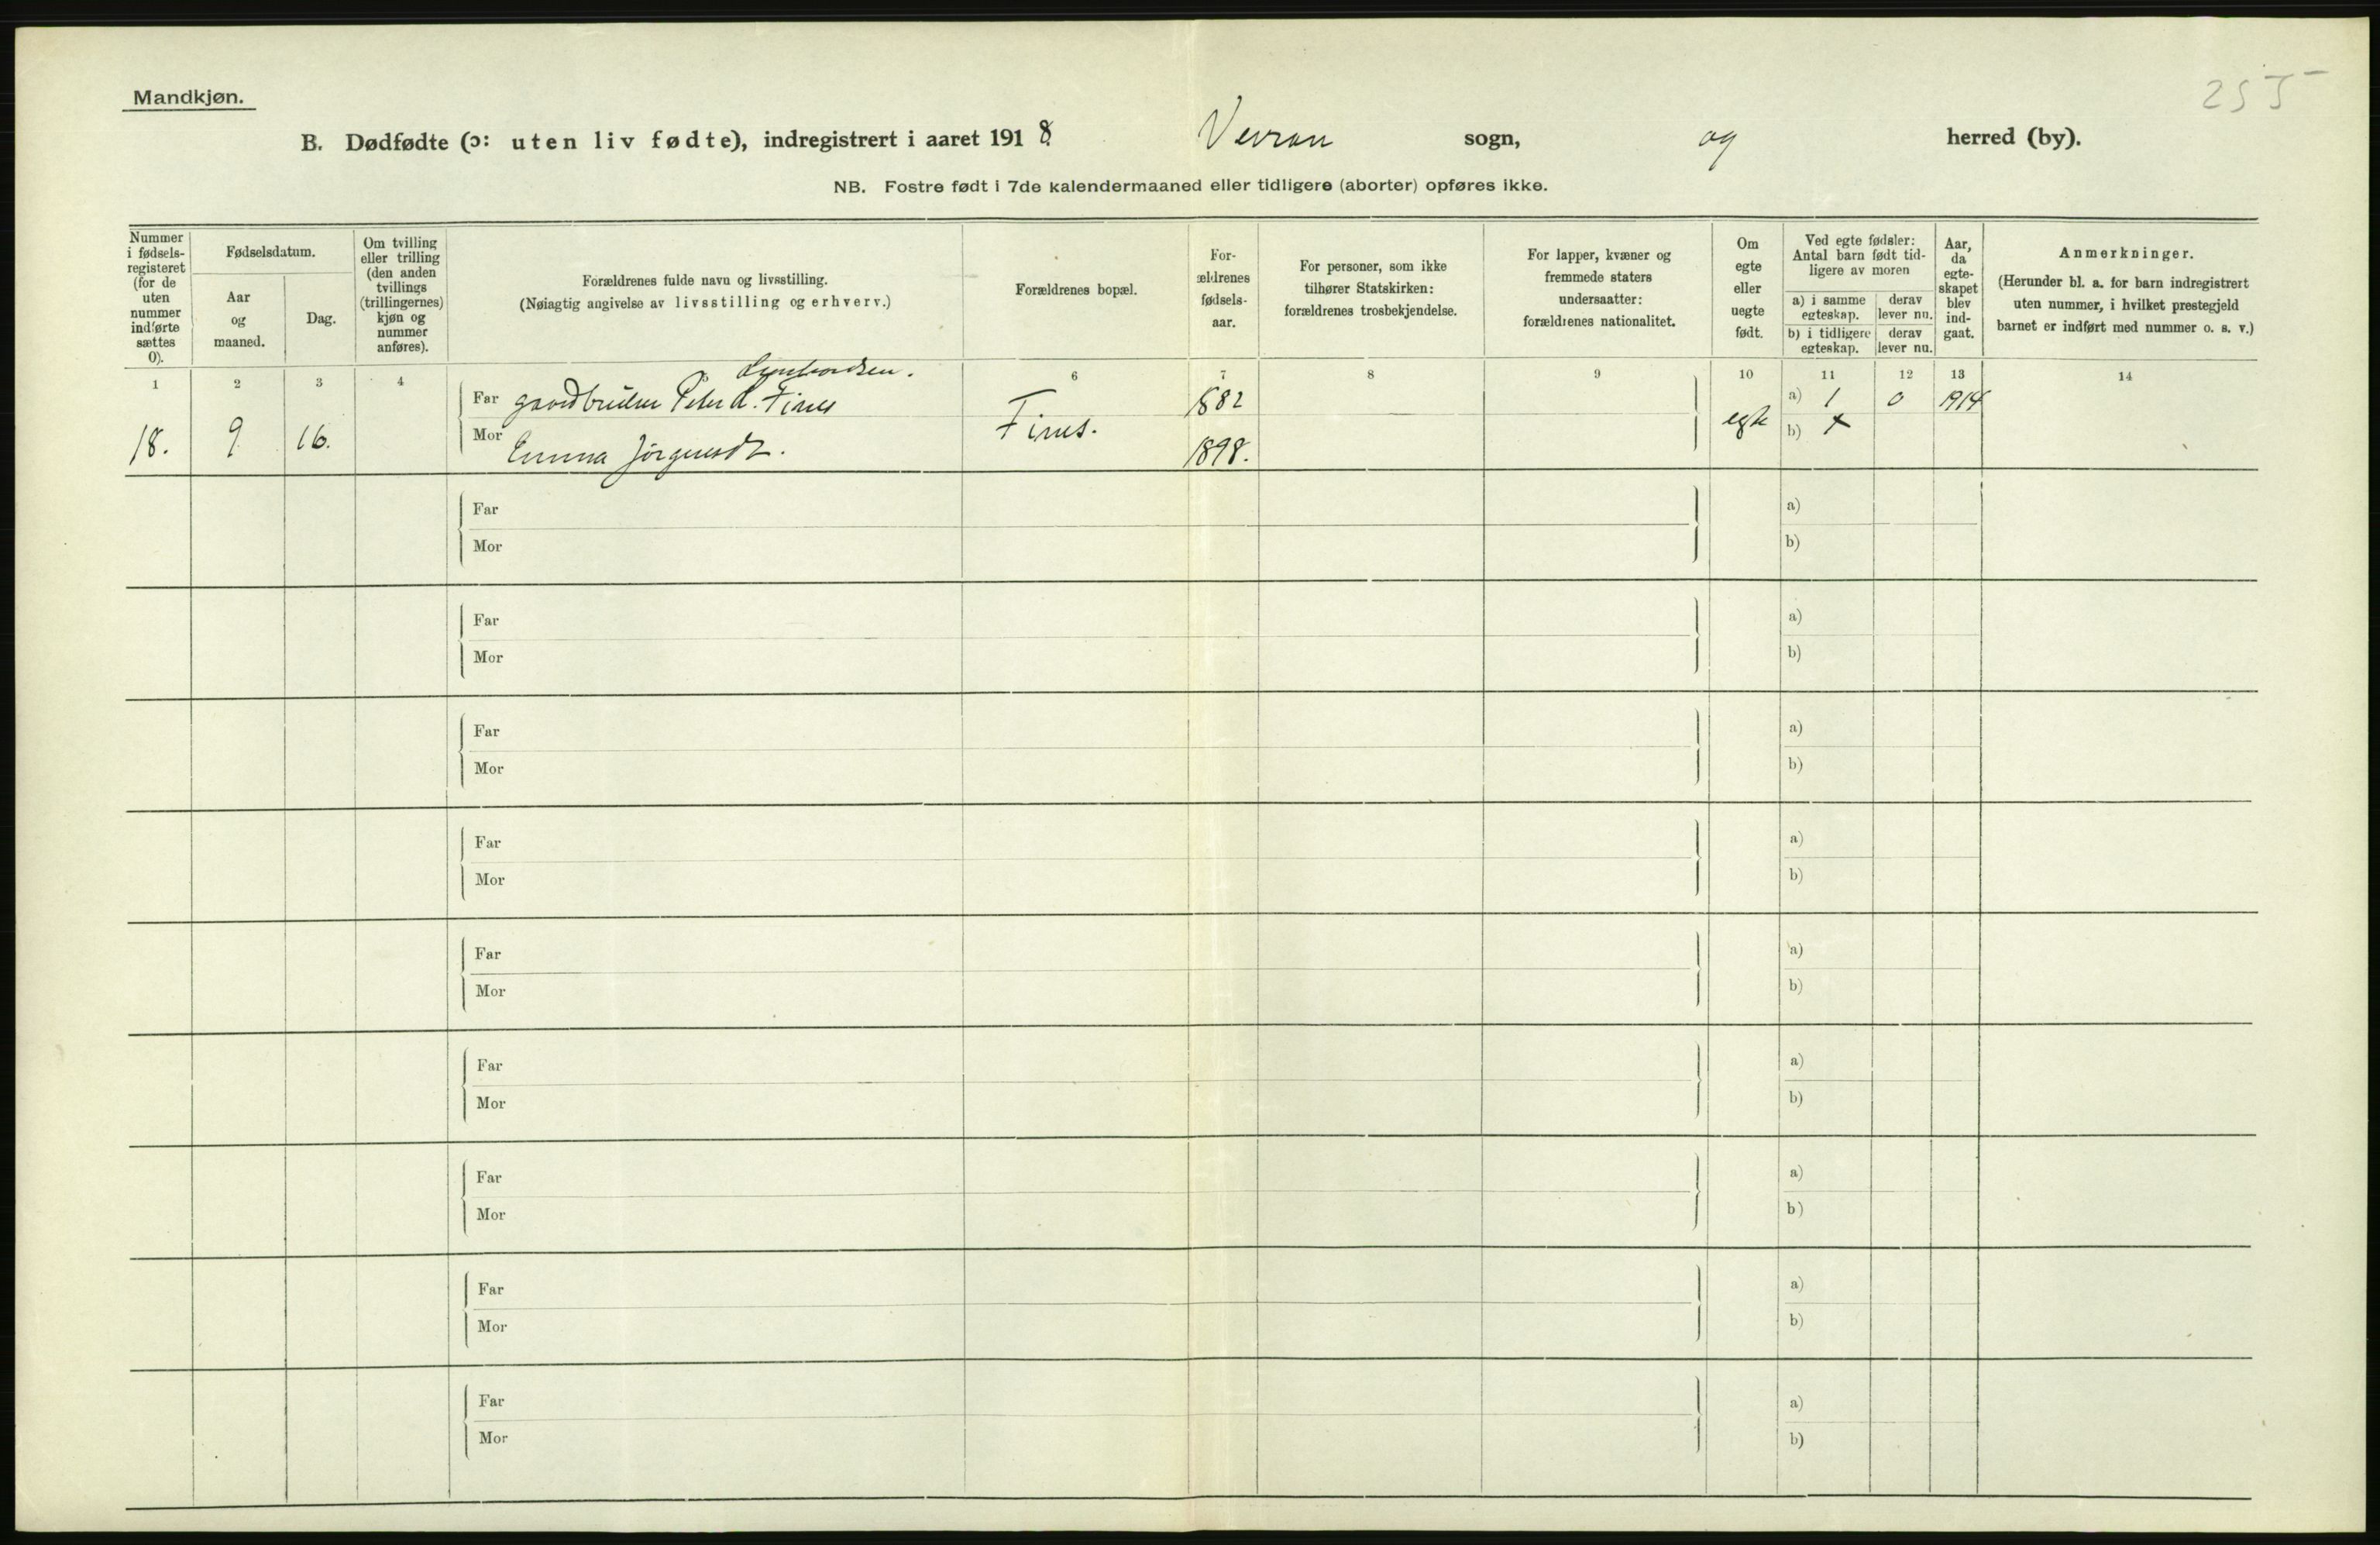 255
Mandkjøn.
B. Dødfødte (ɔ: uten liv fødte), indregistrert i aaret 1918 Verran sogn, og herred (by).
NB. Fostre født i 7de kalendermaaned eller tidligere (aborter) opføres ikke.
Nummer i fødsels-registeret (for de uten nummer indførte sættes 0).
Fødselsdatum.
Aar og maaned.
Dag.
Om tvilling eller trilling (den anden tvillings (trillingernes) kjøn og nummer anføres).
Forældrenes fulde navn og livsstilling.
(Nøiagtig angivelse av livsstilling og erhverv.)
Forældrenes bopæl.
For-ældrenes fødsels-aar.
For personer, som ikke tilhører Statskirken: forældrenes trosbekjendelse.
For lapper, kvæner og fremmede staters undersaatter: forældrenes nationalitet.
Om egte eller uegte født.
Ved egte fødsler: Antal barn født tid-ligere av moren
a) i samme egteskap.
derav lever nu.
b) i tidligere egteskap.
derav lever nu.
Aar, da egte-skapet blev ind-gaat.
Anmerkninger.
(Herunder bl. a. for barn indregistrert uten nummer, i hvilket prestegjeld barnet er indført med nummer o. s. v.)
1 2 3 4 6 7 8 9 10 11 12 13 14
Far gaardbruker Peter Fines 1882 a) 1 0 1914
18. 9 16. Fines. egte
Mor Emma Jørgensdt. 1898. b) x
Far a)
Mor b)
Far a)
Mor b)
Far a)
Mor b)
Far a)
Mor b)
Far a)
Mor b)
Far a)
Mor b)
Far a)
Mor b)
Far a)
Mor b)
Far a)
Mor b)